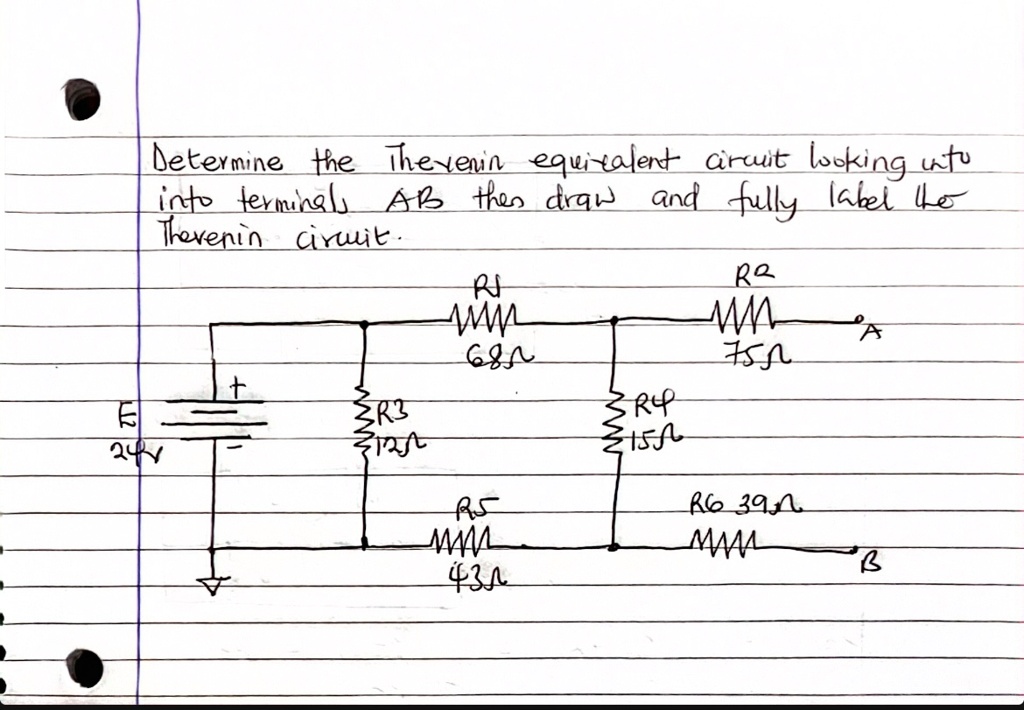 Determine the Thevenin equivalent circuit looking into
into terminals AB then draw and fully label the
Thevenin circuit.
R1
68Ω
R2
75Ω
A
+
E
24v
-
R3
12Ω
R4
15Ω
R5
43Ω
R6 39Ω
B